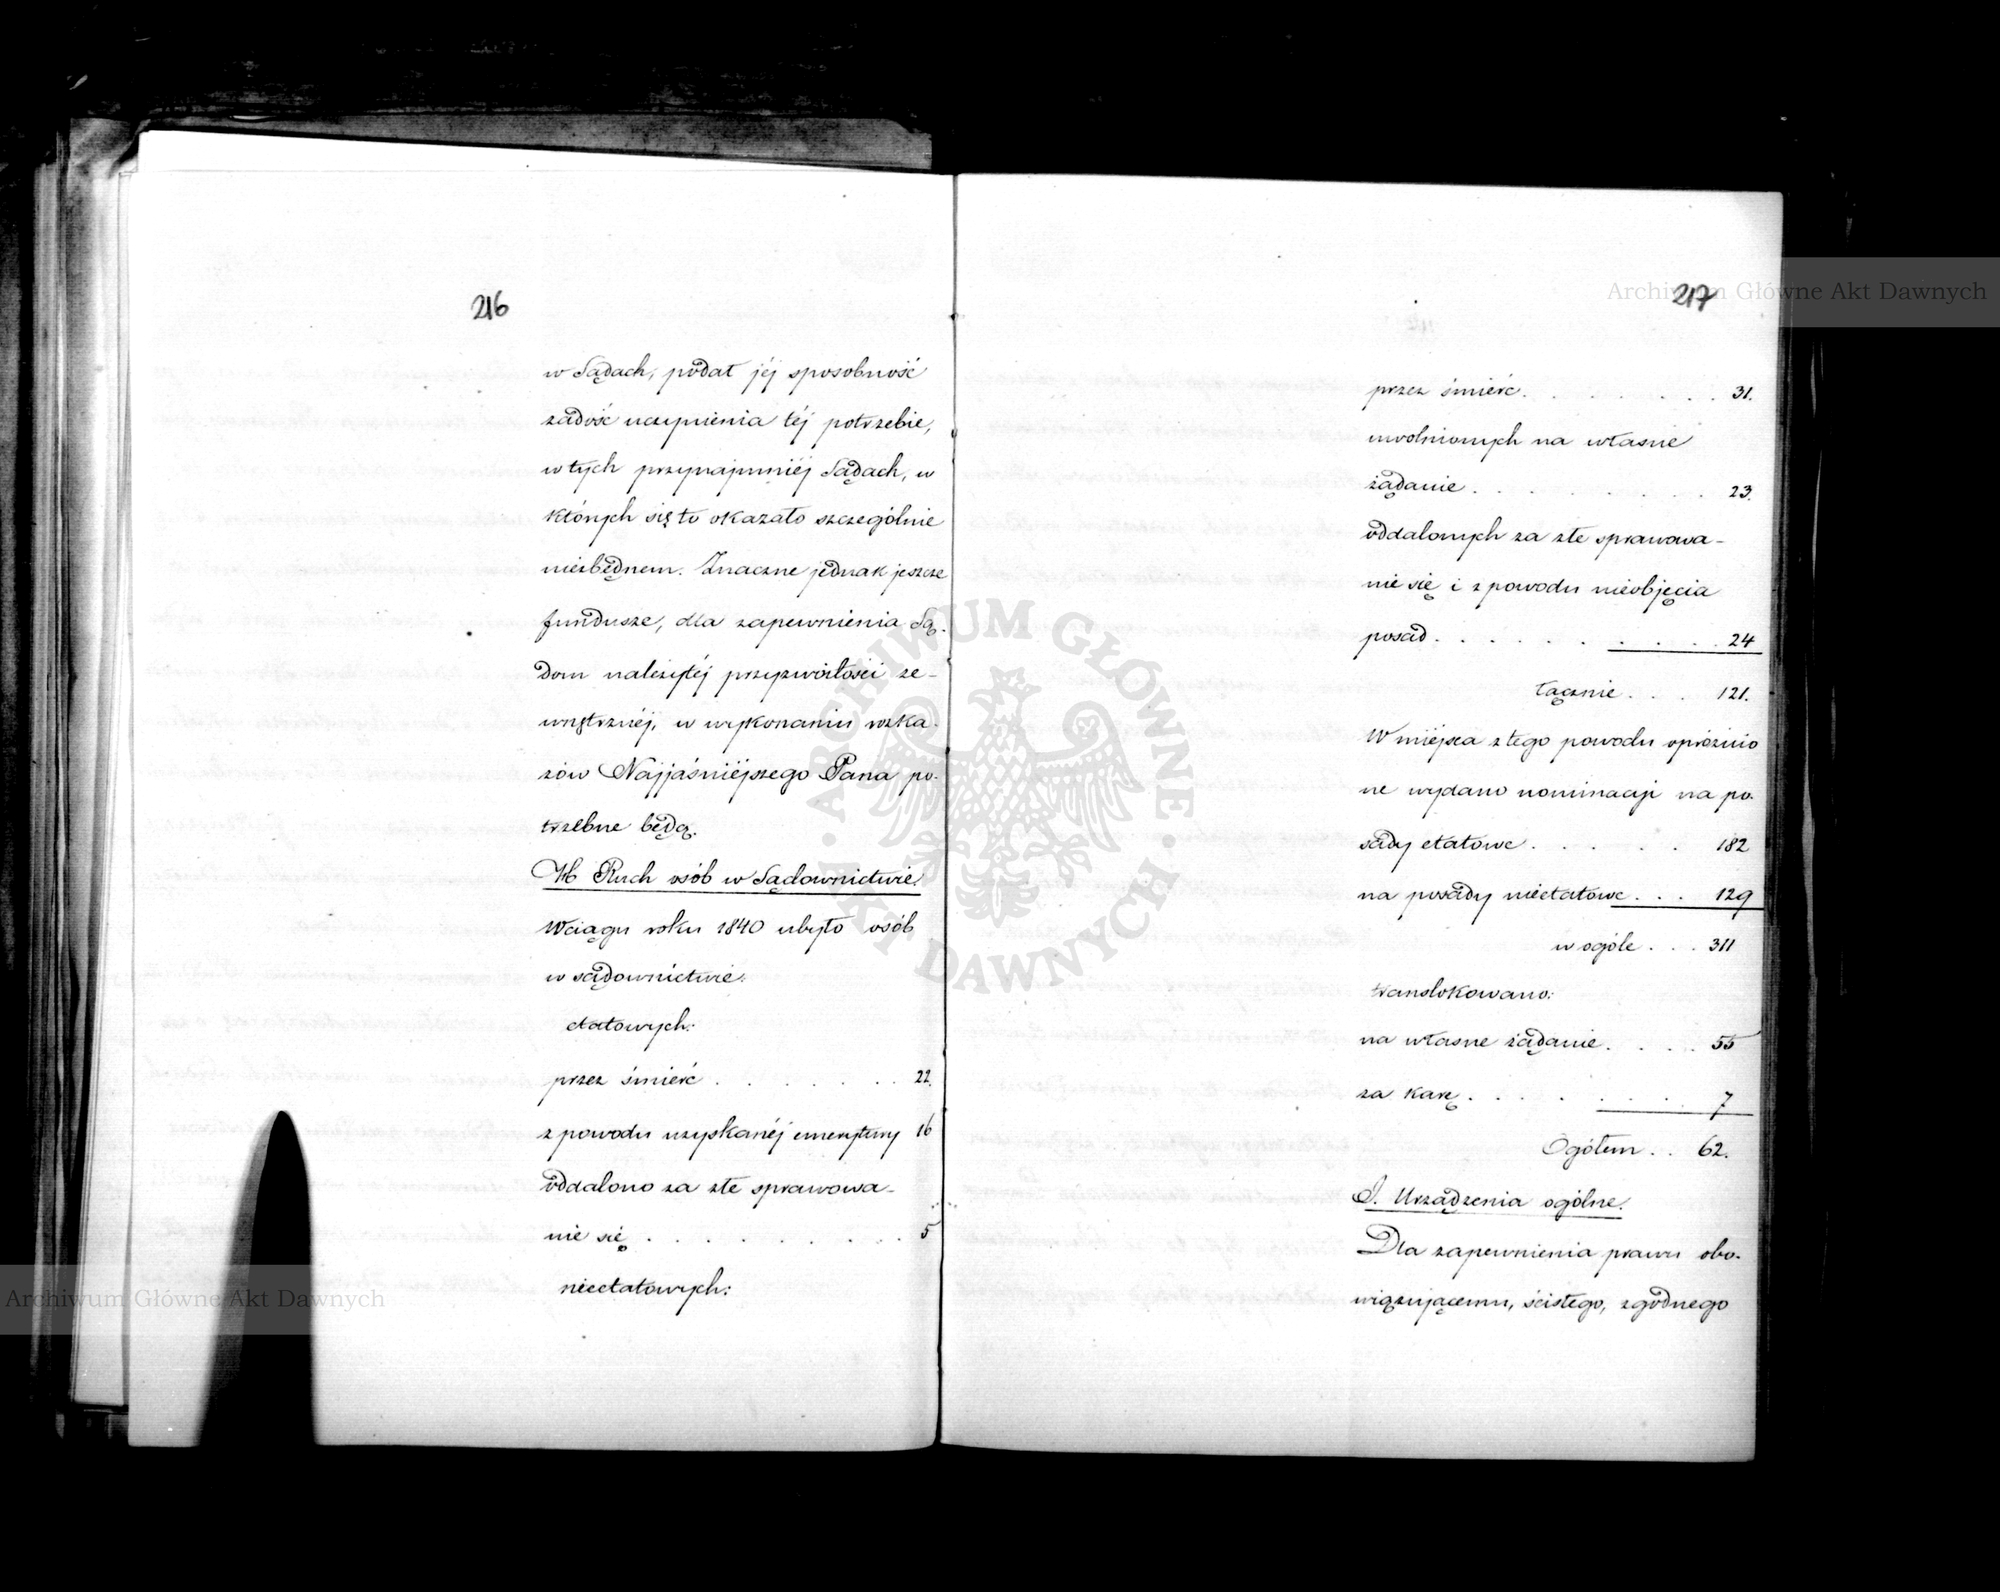 216
w Sądach, podał jéj sposobność
zadość uczynienia téj potrzebie,
w tych przynajmniéj Sądach, w
których się to okazało szczególnie
niezbędnem. Znaczne jednak jeszcze
fundusze, dla zapewnienia Są-
dom należytéj przyzwoitości ze-
wnętrznéj, w wykonaniu rozka-
zów Najjaśniéjszego Pana po-
trzebne będą.
H Ruch osób w Sądownictwie.
W ciągu roku 1840 ubyło osób
w sądownictwie:
etatowych:
przez śmierć . . . . . . . 22.
z powodu uzyskanéj emerytury 16
oddalono za złe sprawowa-
nie się . . . . . . . . . 5
nieetatowych:
217
przez śmierć . . . . . . . . 31.
uwolnionych na własne
żądanie . . . . . . . . . 23.
oddalonych za złe sprawowa-
nie się i z powodu nieobjęcia
posad . . . . . . . . . . 24
łącznie . . . 121.
W miejsca z tego powodu opróżnio
ne wydano nominacji na po-
sady etatowe . . . . . 182
na posady nieetatowe . . . 129
w ogóle . . . 311
translokowano:
na własne żądanie . . . . 55
za karę . . . . . . . . 7
Ogółem . . 62.
I. Urządzenia ogólne.
Dla zapewnienia prawu obo-
wiązującemu, ścisłego, zgodnego
Archiwum Główne Akt Dawnych
Archiwum Główne Akt Dawnych
ARCHIWUM GŁÓWNE AKT DAWNYCH · W ·